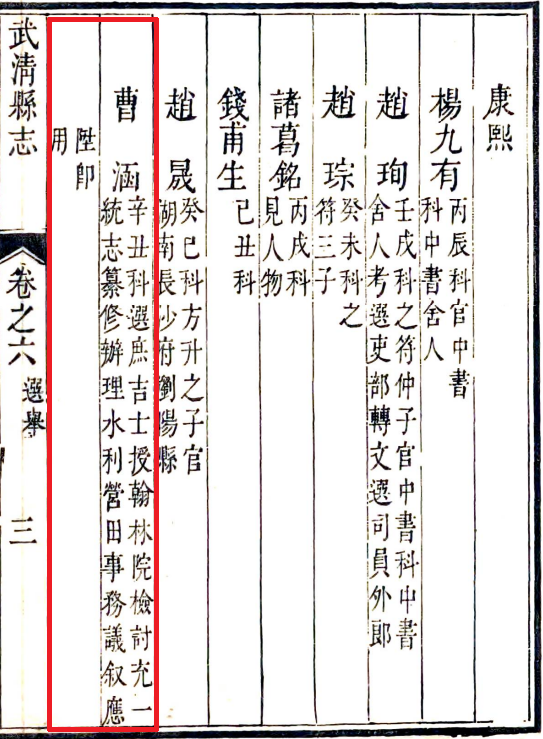 康熙
楊九有
丙辰科官中書
科中書舍人
趙珣
壬戌科之符仲子官中書科中書
舍人考選吏部轉文選司員外郎
趙琮
癸未科之
符三子
諸葛銘
丙戌科
見人物
錢甫生
己丑科
趙晟
癸巳科方升之子官
湖南長沙府劉陽縣
曹涵
辛丑科選庶吉士授翰林院檢討充一
統志纂修辦理水利營田事務議叙應
陞即
用
武清縣志
卷之六
選舉
三